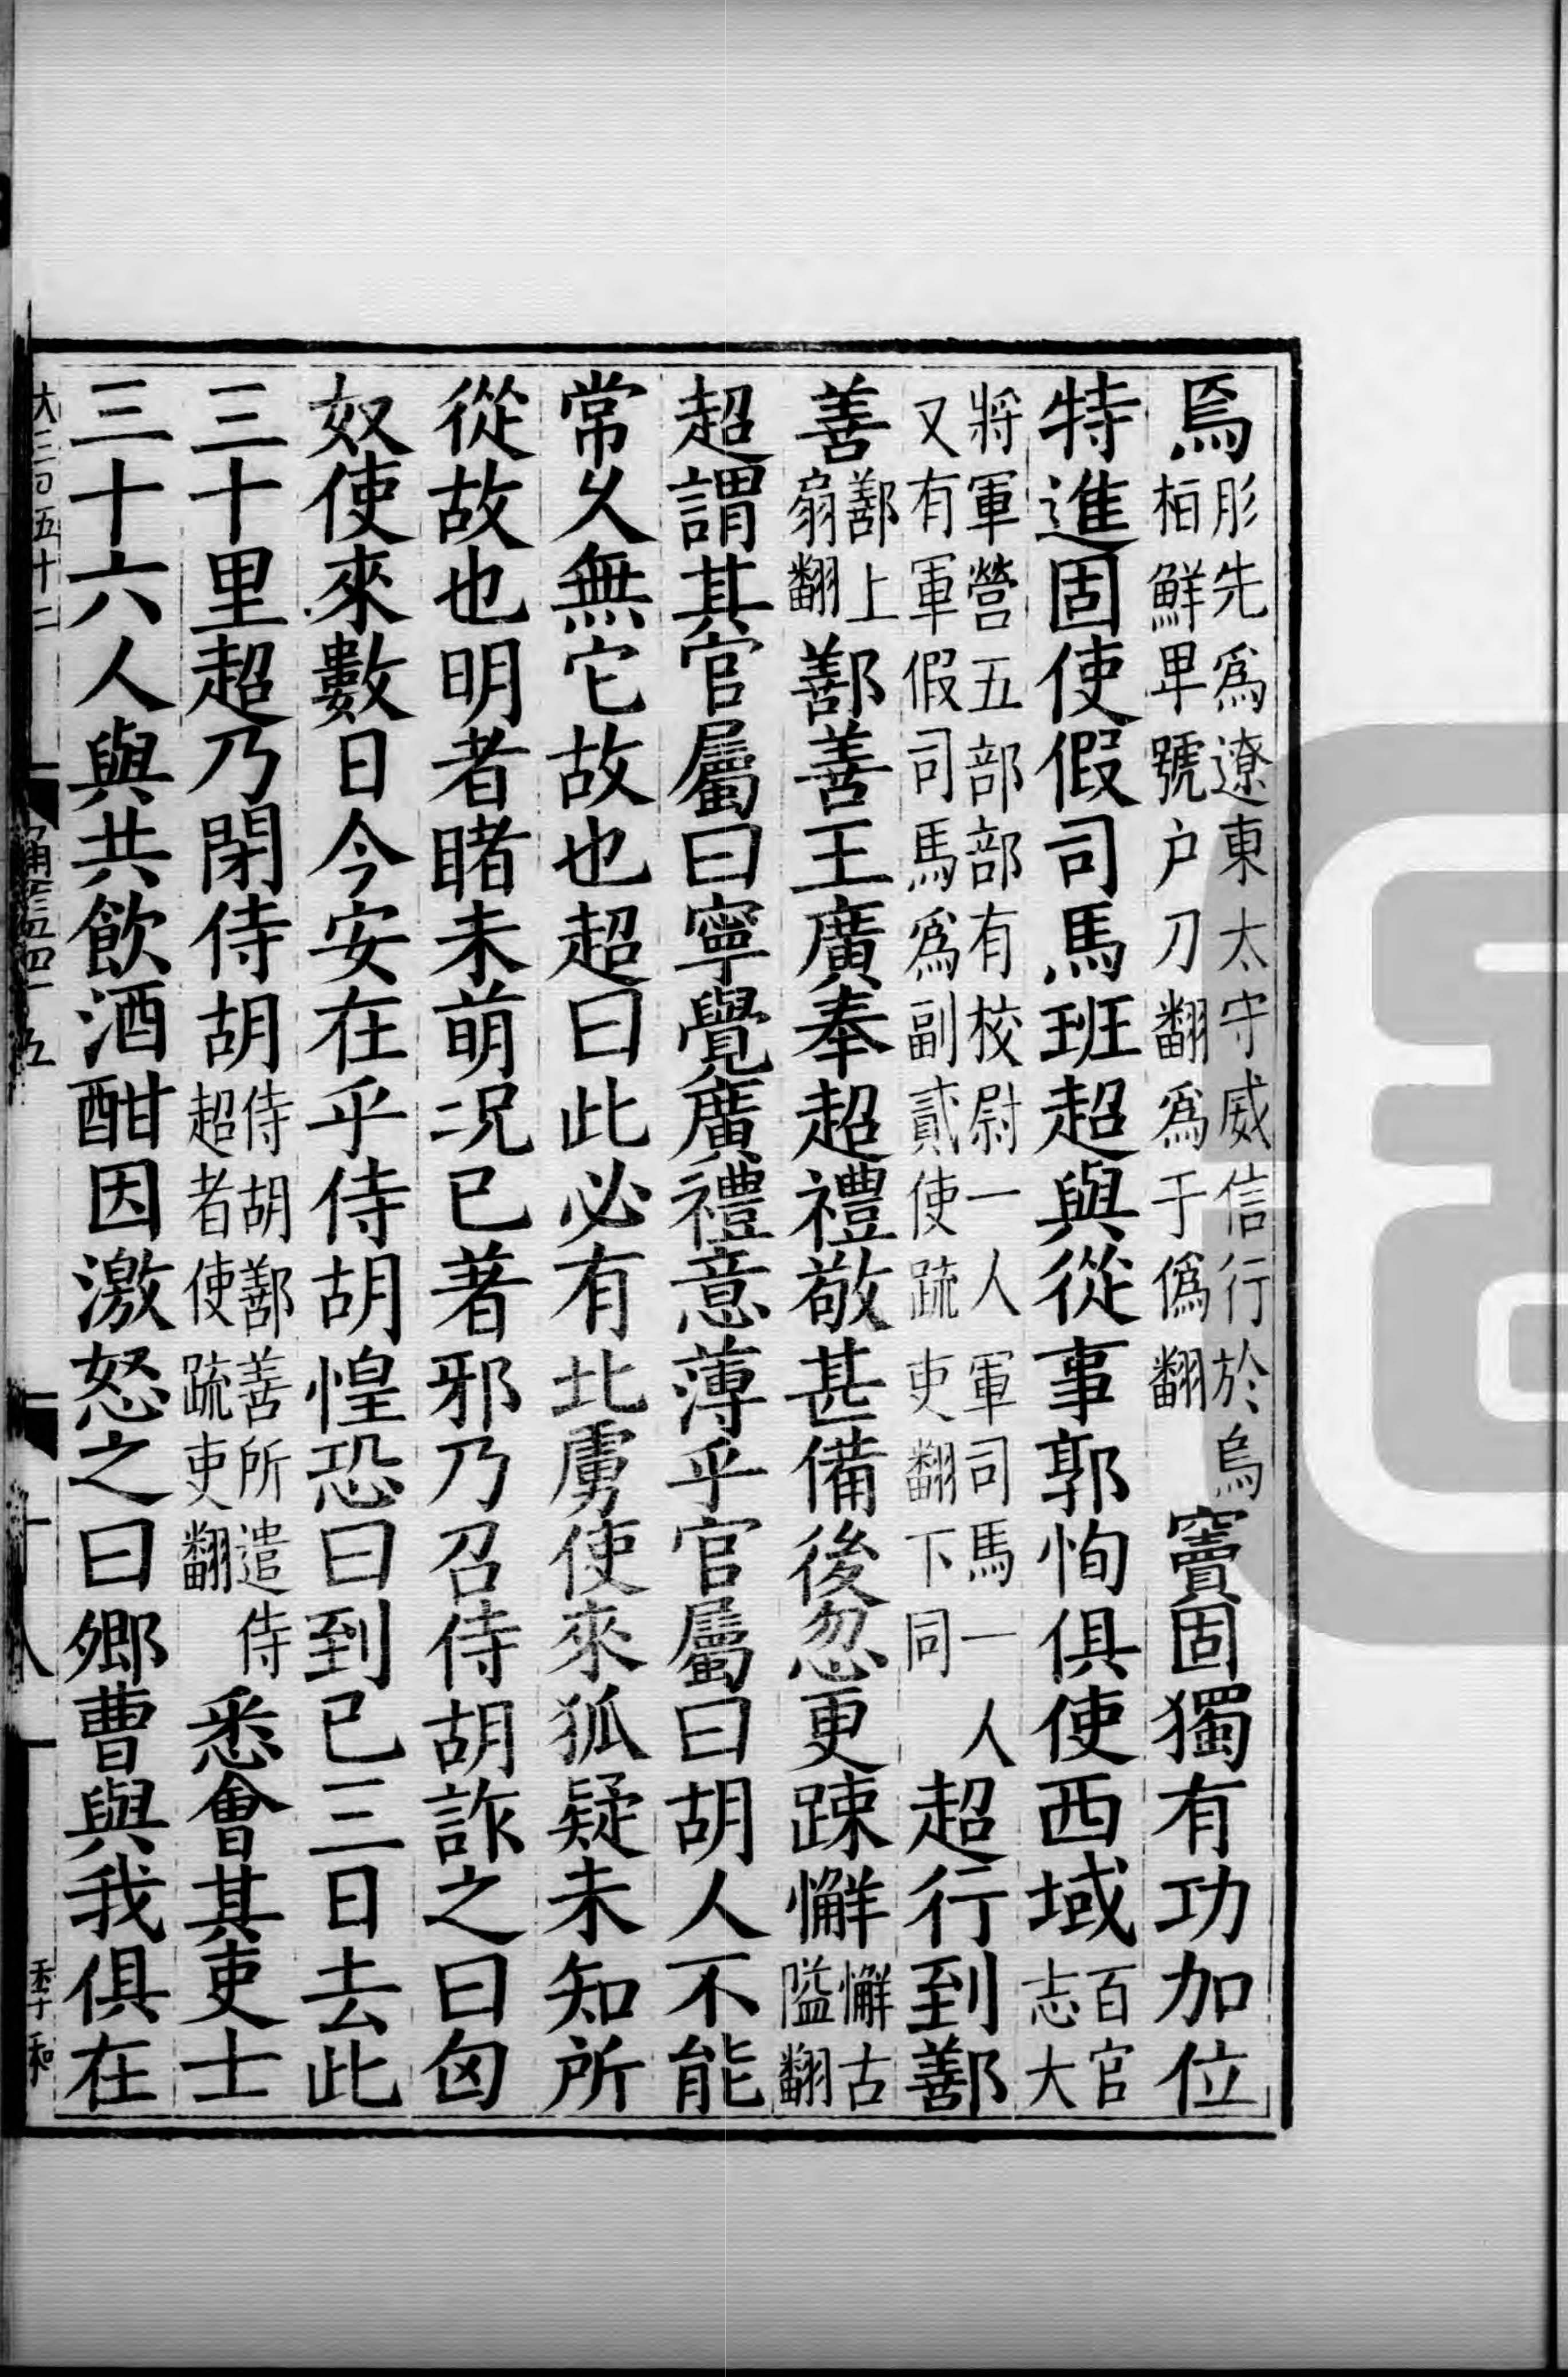 焉彤先爲遼東太守威信行於烏栢鮮卑號户刀翻爲于僞翻竇固獨有功加位
特進固使假司馬班超與從事郭恂俱使西域百官志大
將軍營五部部有校尉一人軍司馬一人又有軍假司馬爲副貳使疏吏翻下同超行到鄯
善鄯上扇翻鄯善王廣奉超禮敬甚備後忽更踈懈懈古隘翻
超謂其官屬曰寧覺廣禮意薄乎官屬曰胡人不能
常久無它故也超曰此必有北虜使來狐疑未知所
從故也明者睹未萌况已著邪乃召侍胡詐之曰匈
奴使來數日今安在乎侍胡惶恐曰到已三日去此
三十里超乃閉侍胡侍胡鄯善所遣侍超者使疏吏翻悉會其吏士
三十六人與共飲酒酣因激怒之曰卿曹與我俱在
大三百五十二